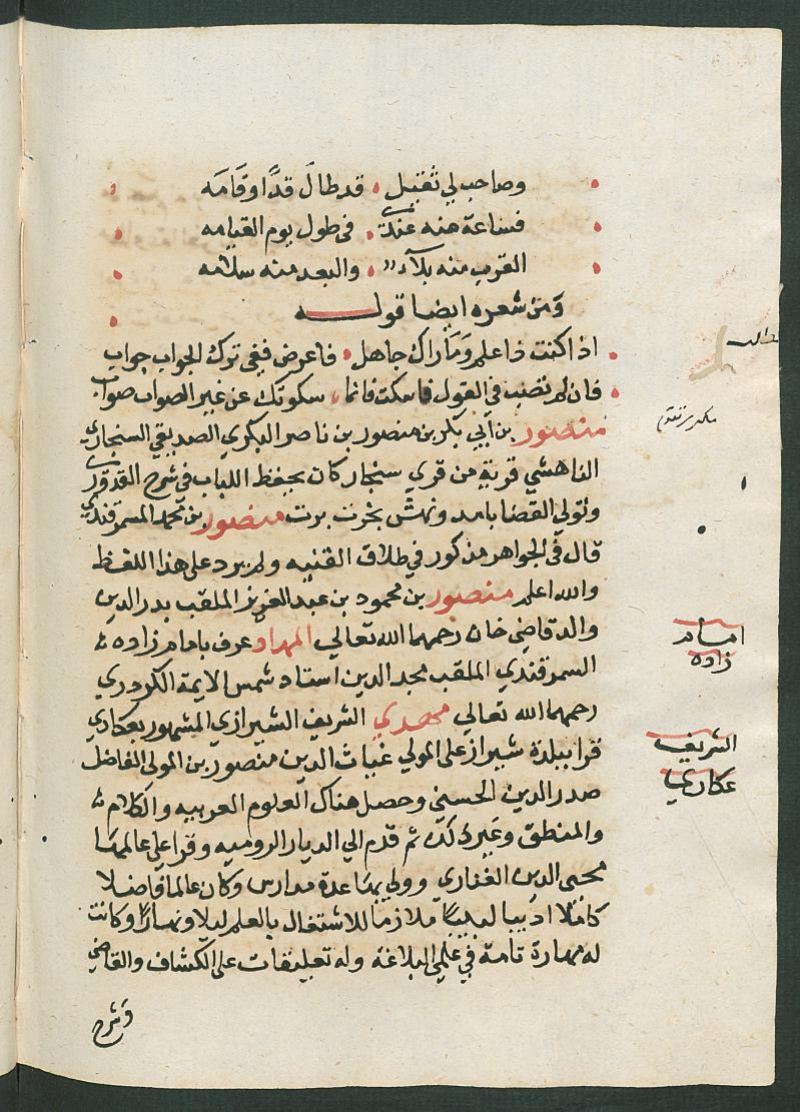 وصاحب لي ثقيل . قد طال قدًّا وقَامَه
فساعة منه عندي . في طول يوم القيامه
القرب منه بلآء . والبعد منه سلامه
وَمِن شعره ايضا قولــه
اذا كنت ذا علم وَمَا راك جاهل . فاعرض ففي ترك الجواب جواب
فان لم تصب في القول فاسكت فانما . سكوتك عن غير الصواب صواب
منصور بن ابي بكر بن منصور بن ناصر البكري الصديقي السنجاري
الناهشي قرية من قري سنجار كان يحفظ اللباب في شرح القدوري
وتولي القضا بامد ونهش بخرت برت منصور بن محمد السمرقندي
قال في الجواهر مذكور في طلاق القنيه ولم يزد على هذا اللفظ
والله اعلم منصور بن محمود بن عبد العزيز الملقب بدر الدين
والد قاضي خان رحمهما الله تعالي المهداد عرف بامام زاده
السمرقندي الملقب مجد الدين استاد شمس الايمة الكردري
رحمهما الله تعالي مهدي الشريف الشيرازي المشهور بعكاري
قرا ببلدة شيراز على المولي غياث الدين منصور بن المولى الفاضل
صدر الدين الحسيني وحصل هناك العلوم العربيه والكلام
والمنطق وغير ذلك ثم قدم الي الديار الروميه وقرا علي عالمها
محيى الدين الفناري وولي بها عدة مدارس وكان عالما فاضلا
كاملا اديبا لبيبًا ملازما للاشتغال بالعلم ليلا ونهارًا وكانت
له مهارة تامة في علمي البلاغة وله تعليقات على الكشاف والقاضي
وشرح
امام
زاده
الشريف
عكاري